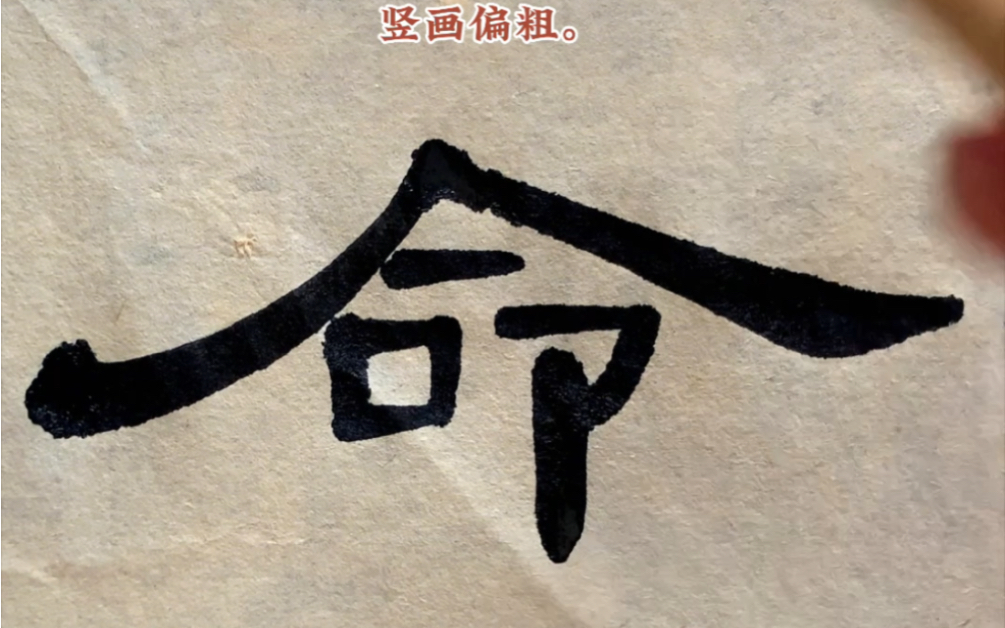 竖画偏粗。
命